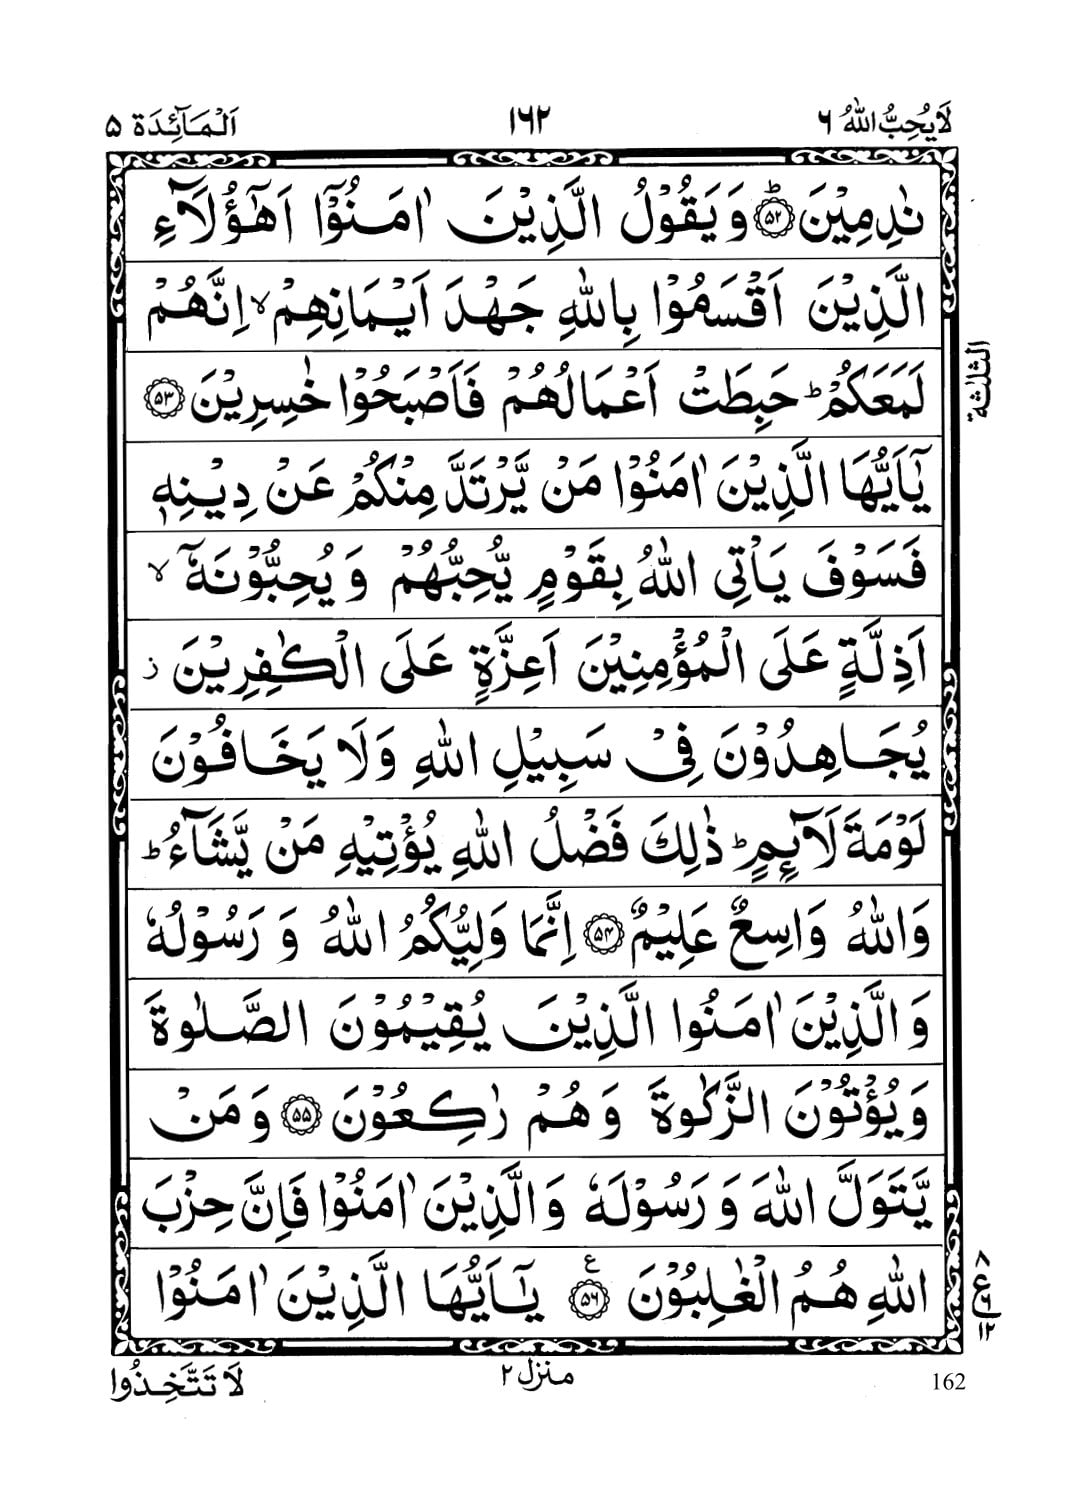 لَا یُحِبُّ اللّٰهُ ۶
۱۶۲
اَلْمَآئِدَة ۵
نٰدِمِیْنَ ؕ﴿۵۲﴾ وَ یَقُوْلُ الَّذِیْنَ اٰمَنُوْۤا اَهٰۤؤُلَآءِ
الَّذِیْنَ اَقْسَمُوْا بِاللّٰهِ جَهْدَ اَیْمَانِهِمْ ۙ اِنَّهُمْ
لَمَعَكُمْ ؕ حَبِطَتْ اَعْمَالُهُمْ فَاَصْبَحُوْا خٰسِرِیْنَ ﴿۵۳﴾
الثلثة
یٰۤاَیُّهَا الَّذِیْنَ اٰمَنُوْا مَنْ یَّرْتَدَّ مِنْكُمْ عَنْ دِیْنِهٖ
فَسَوْفَ یَاْتِی اللّٰهُ بِقَوْمٍ یُّحِبُّهُمْ وَ یُحِبُّوْنَهٗۤ ۙ
اَذِلَّةٍ عَلَی الْمُؤْمِنِیْنَ اَعِزَّةٍ عَلَی الْكٰفِرِیْنَ ز
یُجَاهِدُوْنَ فِیْ سَبِیْلِ اللّٰهِ وَلَا یَخَافُوْنَ
لَوْمَةَ لَآئِمٍ ؕ ذٰلِكَ فَضْلُ اللّٰهِ یُؤْتِیْهِ مَنْ یَّشَآءُ ؕ
وَاللّٰهُ وَاسِعٌ عَلِیْمٌ ﴿۵۴﴾ اِنَّمَا وَلِیُّكُمُ اللّٰهُ وَ رَسُوْلُهٗ
وَ الَّذِیْنَ اٰمَنُوا الَّذِیْنَ یُقِیْمُوْنَ الصَّلٰوةَ
وَ یُؤْتُوْنَ الزَّكٰوةَ وَ هُمْ رٰكِعُوْنَ ﴿۵۵﴾ وَ مَنْ
یَّتَوَلَّ اللّٰهَ وَ رَسُوْلَهٗ وَ الَّذِیْنَ اٰمَنُوْا فَاِنَّ حِزْبَ
اللّٰهِ هُمُ الْغٰلِبُوْنَ ﴿۵۶﴾ ع یٰۤاَیُّهَا الَّذِیْنَ اٰمَنُوْا
۸
ع
۶
۱۲
لَا تَتَّخِذُوا
منزل ۲
162